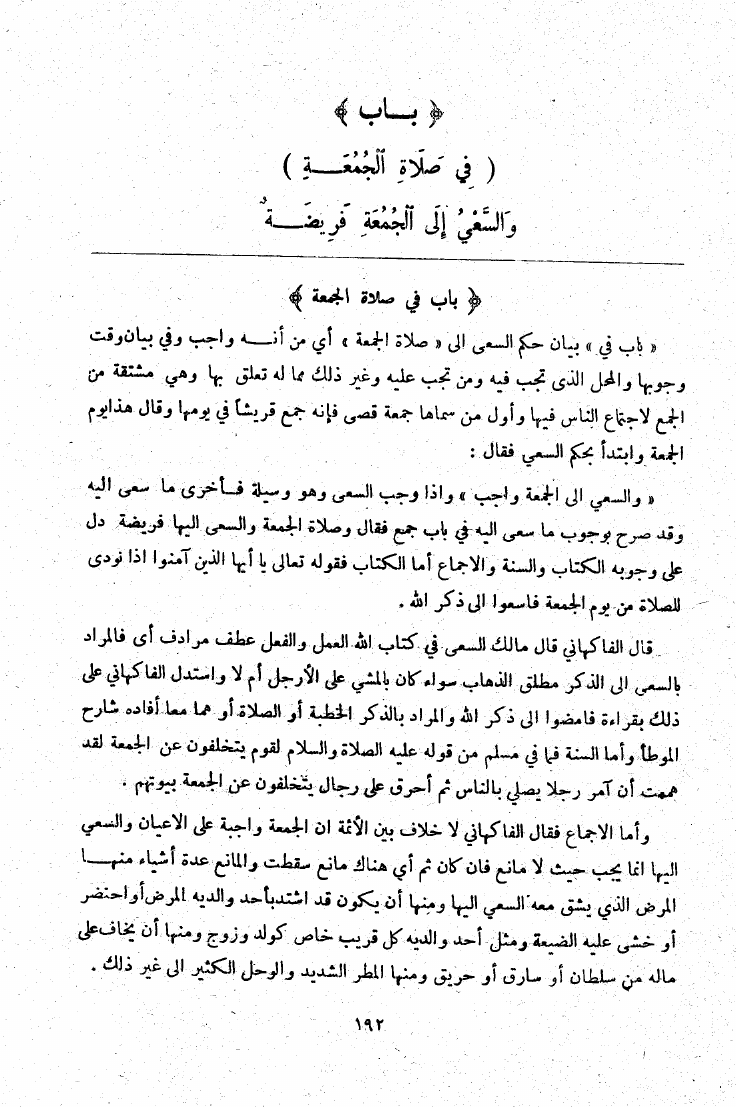 ﴿ بـــاب ﴾
( فِي صَلَاةِ ٱلْجُمُعَـــةِ )
وَالسَّعْيُ إِلَى ٱلْجُمُعَةِ فَرِيضَـــةٌ
﴿ باب في صلاة الجمعة ﴾
« باب في » بيان حكم السعى الى « صلاة الجمعة » أي من أنـــه واجب وفي بيان وقت
وجوبها والمحل الذى تجب فيه ومن تجب عليه وغير ذلك مما له تعلق بها وهي مشتقة من
الجمع لاجتماع الناس فيها وأول من سماها جمعة قصى فإنه جمع قريشاً في يومها وقال هذا يوم
الجمعة وابتدأ بحكم السعي فقال :
« والسعي الى الجمعة واجب » واذا وجب السعى وهو وسيلة فـأخرى ما سعى اليه
وقد صرح بوجوب ما سعى اليه في باب جمع فقال وصلاة الجمعة والسعى اليها فريضة دل
على وجوبه الكتاب والسنة والاجماع أما الكتاب فقوله تعالى يا أيها الذين آمنوا اذا نودى
للصلاة من يوم الجمعة فاسعوا الى ذكر الله .
قال الفاكهاني قال مالك السعى في كتاب الله العمل والفعل عطف مرادف أى فالمراد
بالسعى الى الذكر مطلق الذهاب سواء كان بالمشي على الأرجل أم لا واستدل الفاكهاني على
ذلك بقراءة فامضوا الى ذكر الله والمراد بالذكر الخطبة أو الصلاة أو هما معا أفاده شارح
الموطأ وأما السنة فما في مسلم من قوله عليه الصلاة والسلام لقوم يتخلفون عن الجمعة لقد
هممت أن آمر رجلا يصلي بالناس ثم أحرق على رجال يتخلفون عن الجمعة بيوتهم .
وأما الاجماع فقال الفاكهاني لا خلاف بين الأئمة ان الجمعة واجبة على الاعيان والسعي
اليها انما يجب حيث لا مانع فان كان ثم أي هناك مانع سقطت والمانع عدة أشياء منهـــا
المرض الذي يشق معه السعي اليها ومنها أن يكون قد اشتد بأحد والديه المرض أو احتضر
أو خشى عليه الضيعة ومثل أحد والديه كل قريب خاص كولد وزوج ومنها أن يخاف على
ماله من سلطان أو سارق أو حريق ومنها المطر الشديد والوحل الكثير الى غير ذلك .
١٩٢